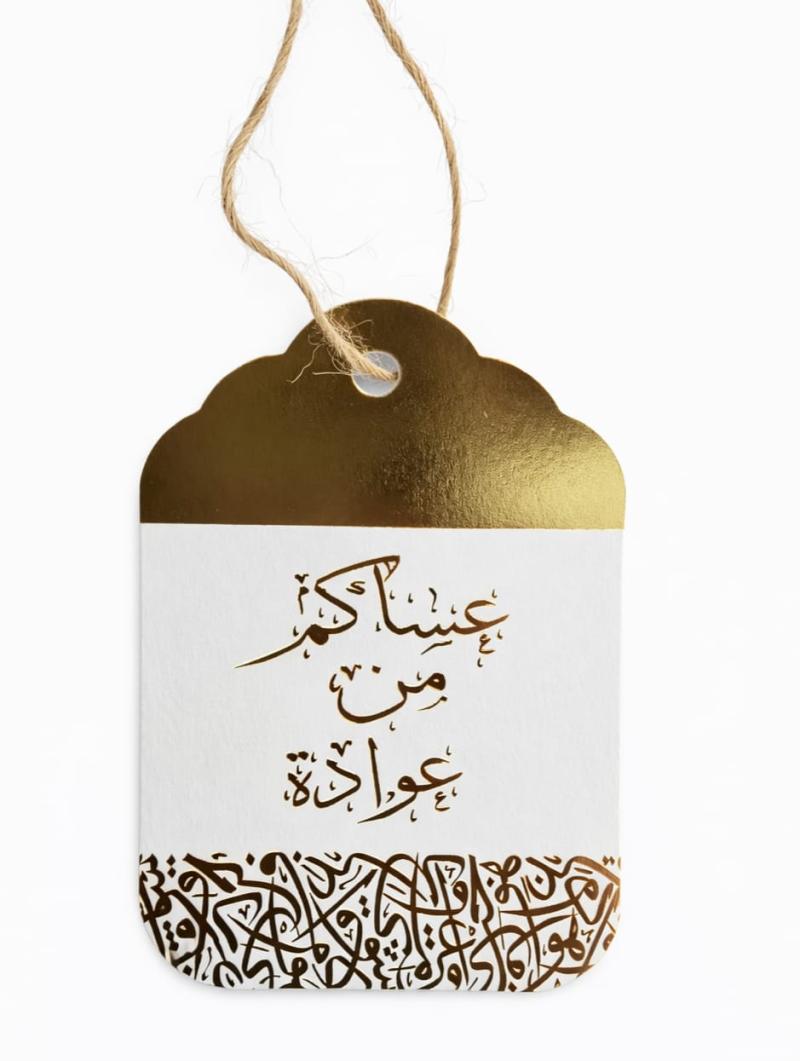 عساكم
من
عوادة